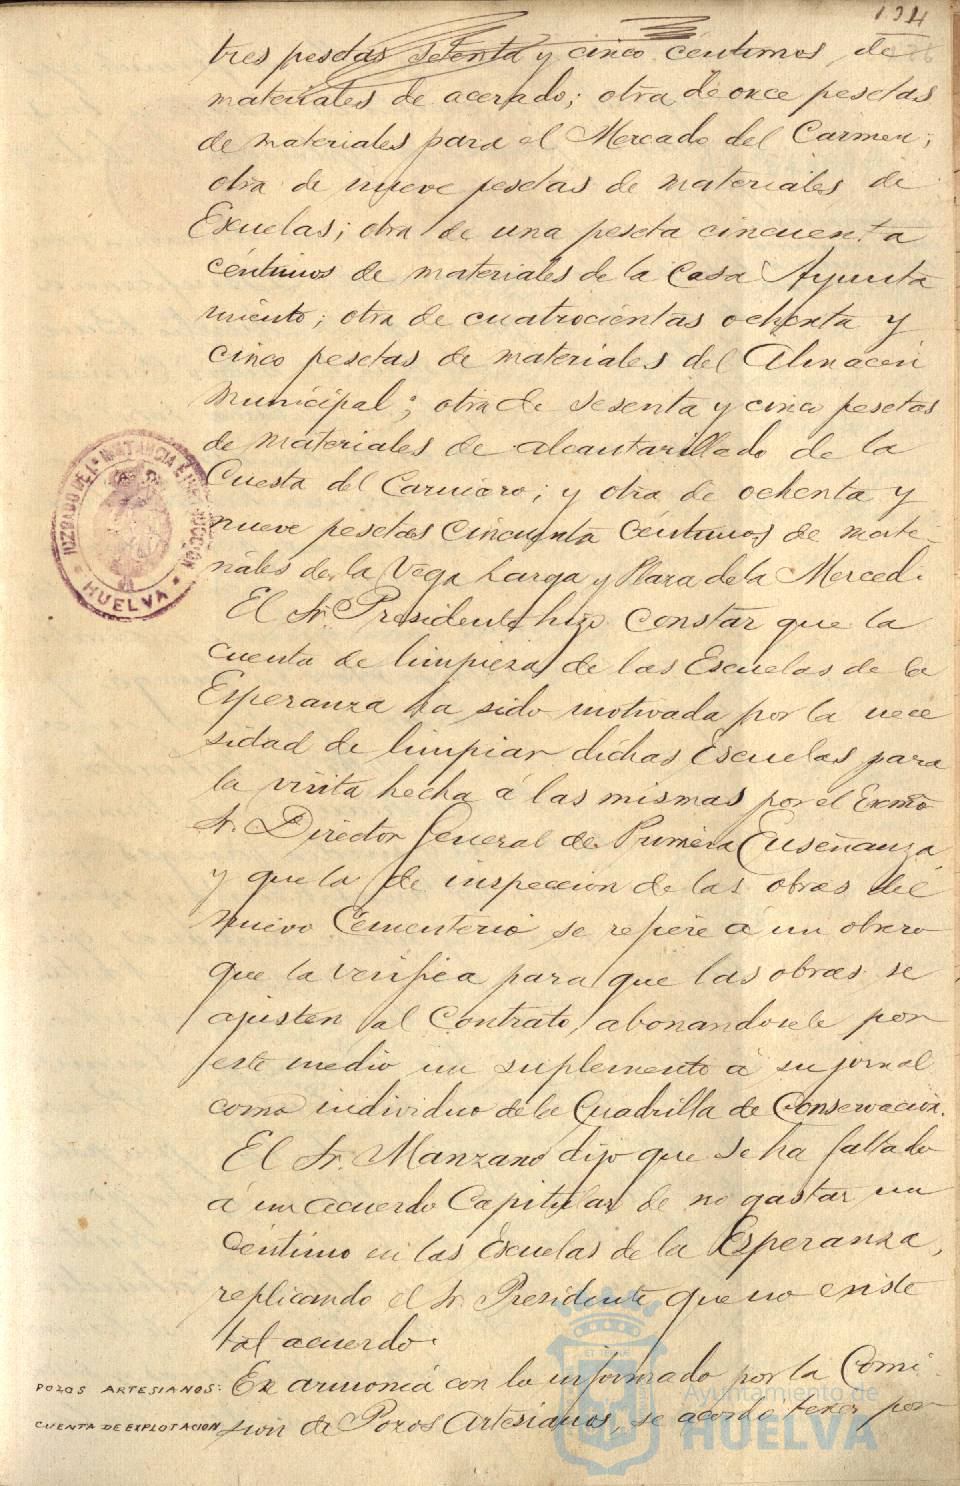 134
tres pesetas setenta y cinco céntimos, de
materiales de acerado; otra de once pesetas
de materiales para el Mercado del Carmen;
otra de nueve pesetas de materiales de
Escuelas; otra de una peseta cincuenta
céntimos de materiales de la Casa Ayunta
miento; otra de cuatrocientas ochenta y
cinco pesetas de materiales del Almacén
Municipal; otra de sesenta y cinco pesetas
de materiales de alcantarillado de la
Cuesta del Carnicero; y otra de ochenta y
nueve pesetas cincuenta céntimos de mate-
riales de la Vega Larga y Plaza de la Merced.
El Sr. Presidente hizo constar que la
cuenta de limpieza de las Escuelas de la
Esperanza ha sido motivada por la nece
sidad de limpiar dichas Escuelas para
la visita hecha á las mismas por el Excmo
Sr. Director General de Primera Enseñanza,
y que la de inspeccion de las obras del
nuevo Cementerio se refiere á un obrero
que la verifica para que las obras se
ajusten al Contrato, abonandosele por
este medio un suplemento á su jornal
como individuo de la Cuadrilla de Conservacion.
El Sr. Manzano dijo que se ha faltado
á un acuerdo Capitular de no gastar un
céntimo en las Escuelas de la Esperanza,
replicando el Sr. Presidente que no existe
tal acuerdo.
POZOS ARTESIANOS: En armonía con lo informado por la Comi
CUENTA DE EXPLOTACION sion de Pozos Artesianos, se acordó tener por
JUZGADO DE 1ª INSTANCIA E INSTRUCCION
HUELVA
Ayuntamiento de
HUELVA